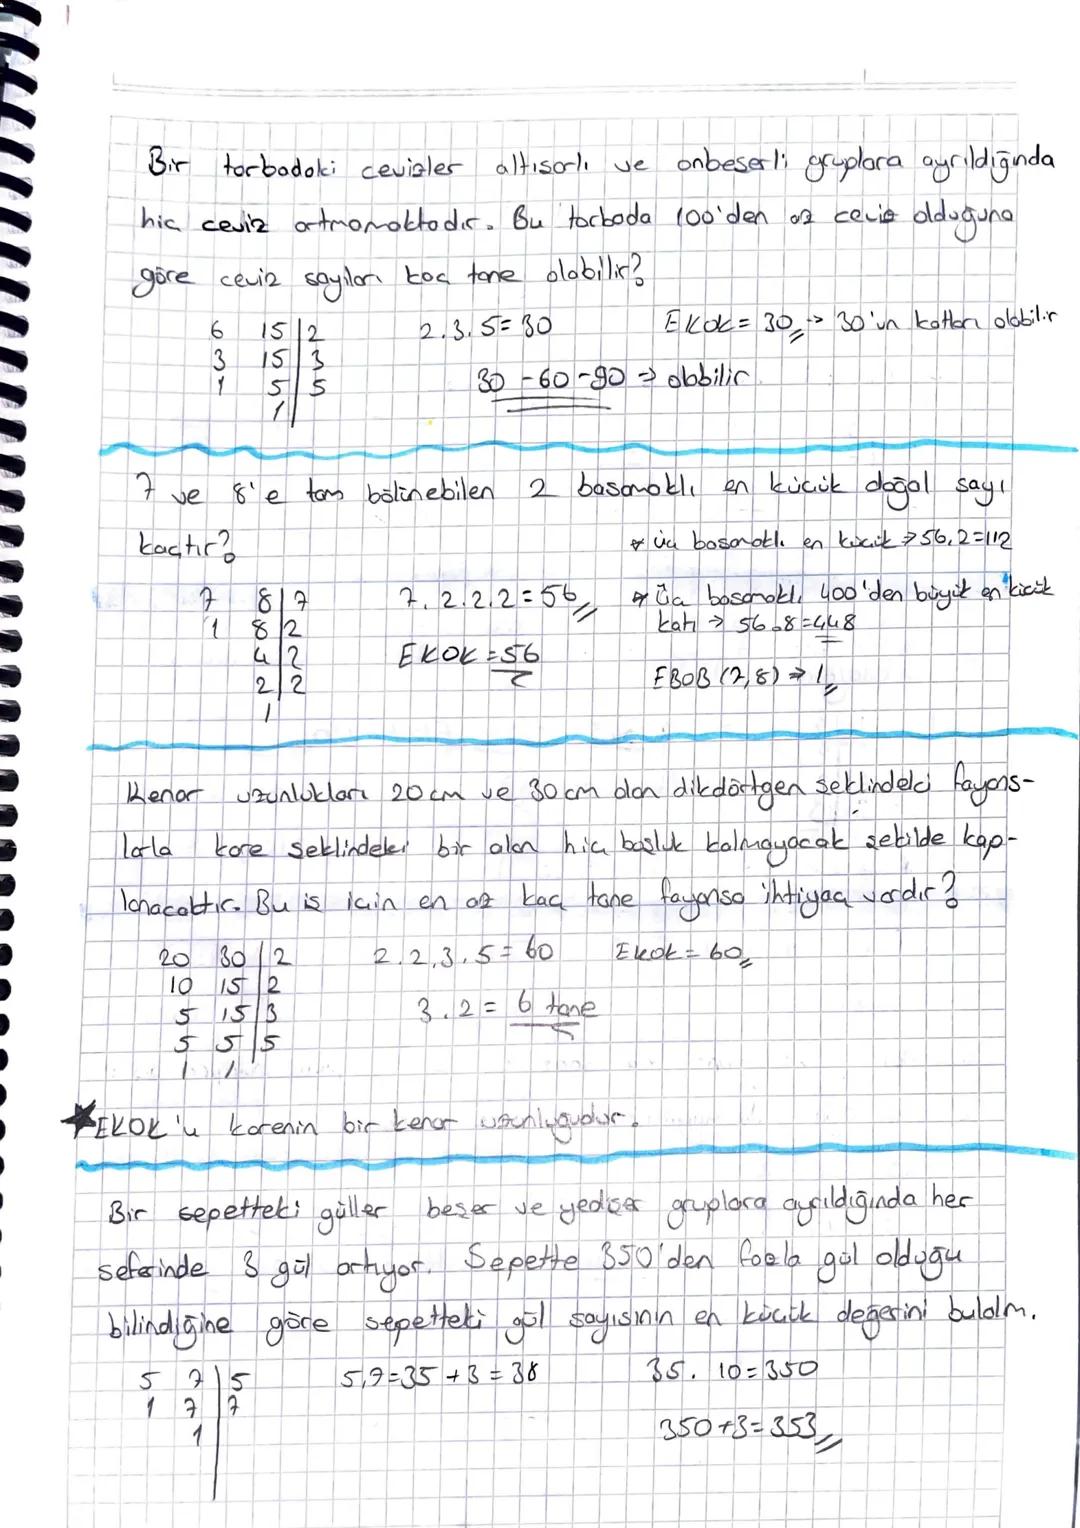 Bir torbadaki cevizler altışarlı ve onbeşerli gruplara ayrıldığında
hiç ceviz artmamaktadır. Bu torbada 100'den az ceviz olduğuna
göre ceviz sayıları kaç tane olabilir?
6 15 | 2 2.3.5=30 EKOK = 30 → 30'un katları olabilir
3 15 | 3
1 5 | 5 30 - 60 - 90 ⇒ olabilir
1
7 ve 8'e tam bölünebilen 2 basamaklı en küçük doğal sayı
kaçtır? * üç basamaklı en küçük → 56.2=112
7 8 | 7 7.2.2.2=56 * Üç basamaklı 400'den büyük en küçük
1 8 | 2 katı → 56.8=448
4 | 2 EKOK=56
2 | 2 EBOB (7,8) → 1
1
Kenar uzunlukları 20 cm ve 30 cm olan dikdörtgen şeklindeki fayans-
larla kare şeklindeki bir alan hiç boşluk kalmayacak şekilde kap-
lanacaktır. Bu iş için en az kaç tane fayansa ihtiyaç vardır?
20 30 | 2 2.2.3.5=60 Ekok=60
10 15 | 2
5 15 | 3 3.2= 6 tane
5 5 | 5
1 1
★EKOK'u karenin bir kenar uzunluğudur.
Bir sepetteki güller beşer ve yedişer gruplara ayrıldığında her
seferinde 3 gül artıyor. Sepette 350'den fazla gül olduğu
bilindiğine göre sepetteki gül sayısının en küçük değerini bulalm.
5 7 | 5 5.7=35+3=38 35. 10=350
1 7 | 7
1 350+3=353